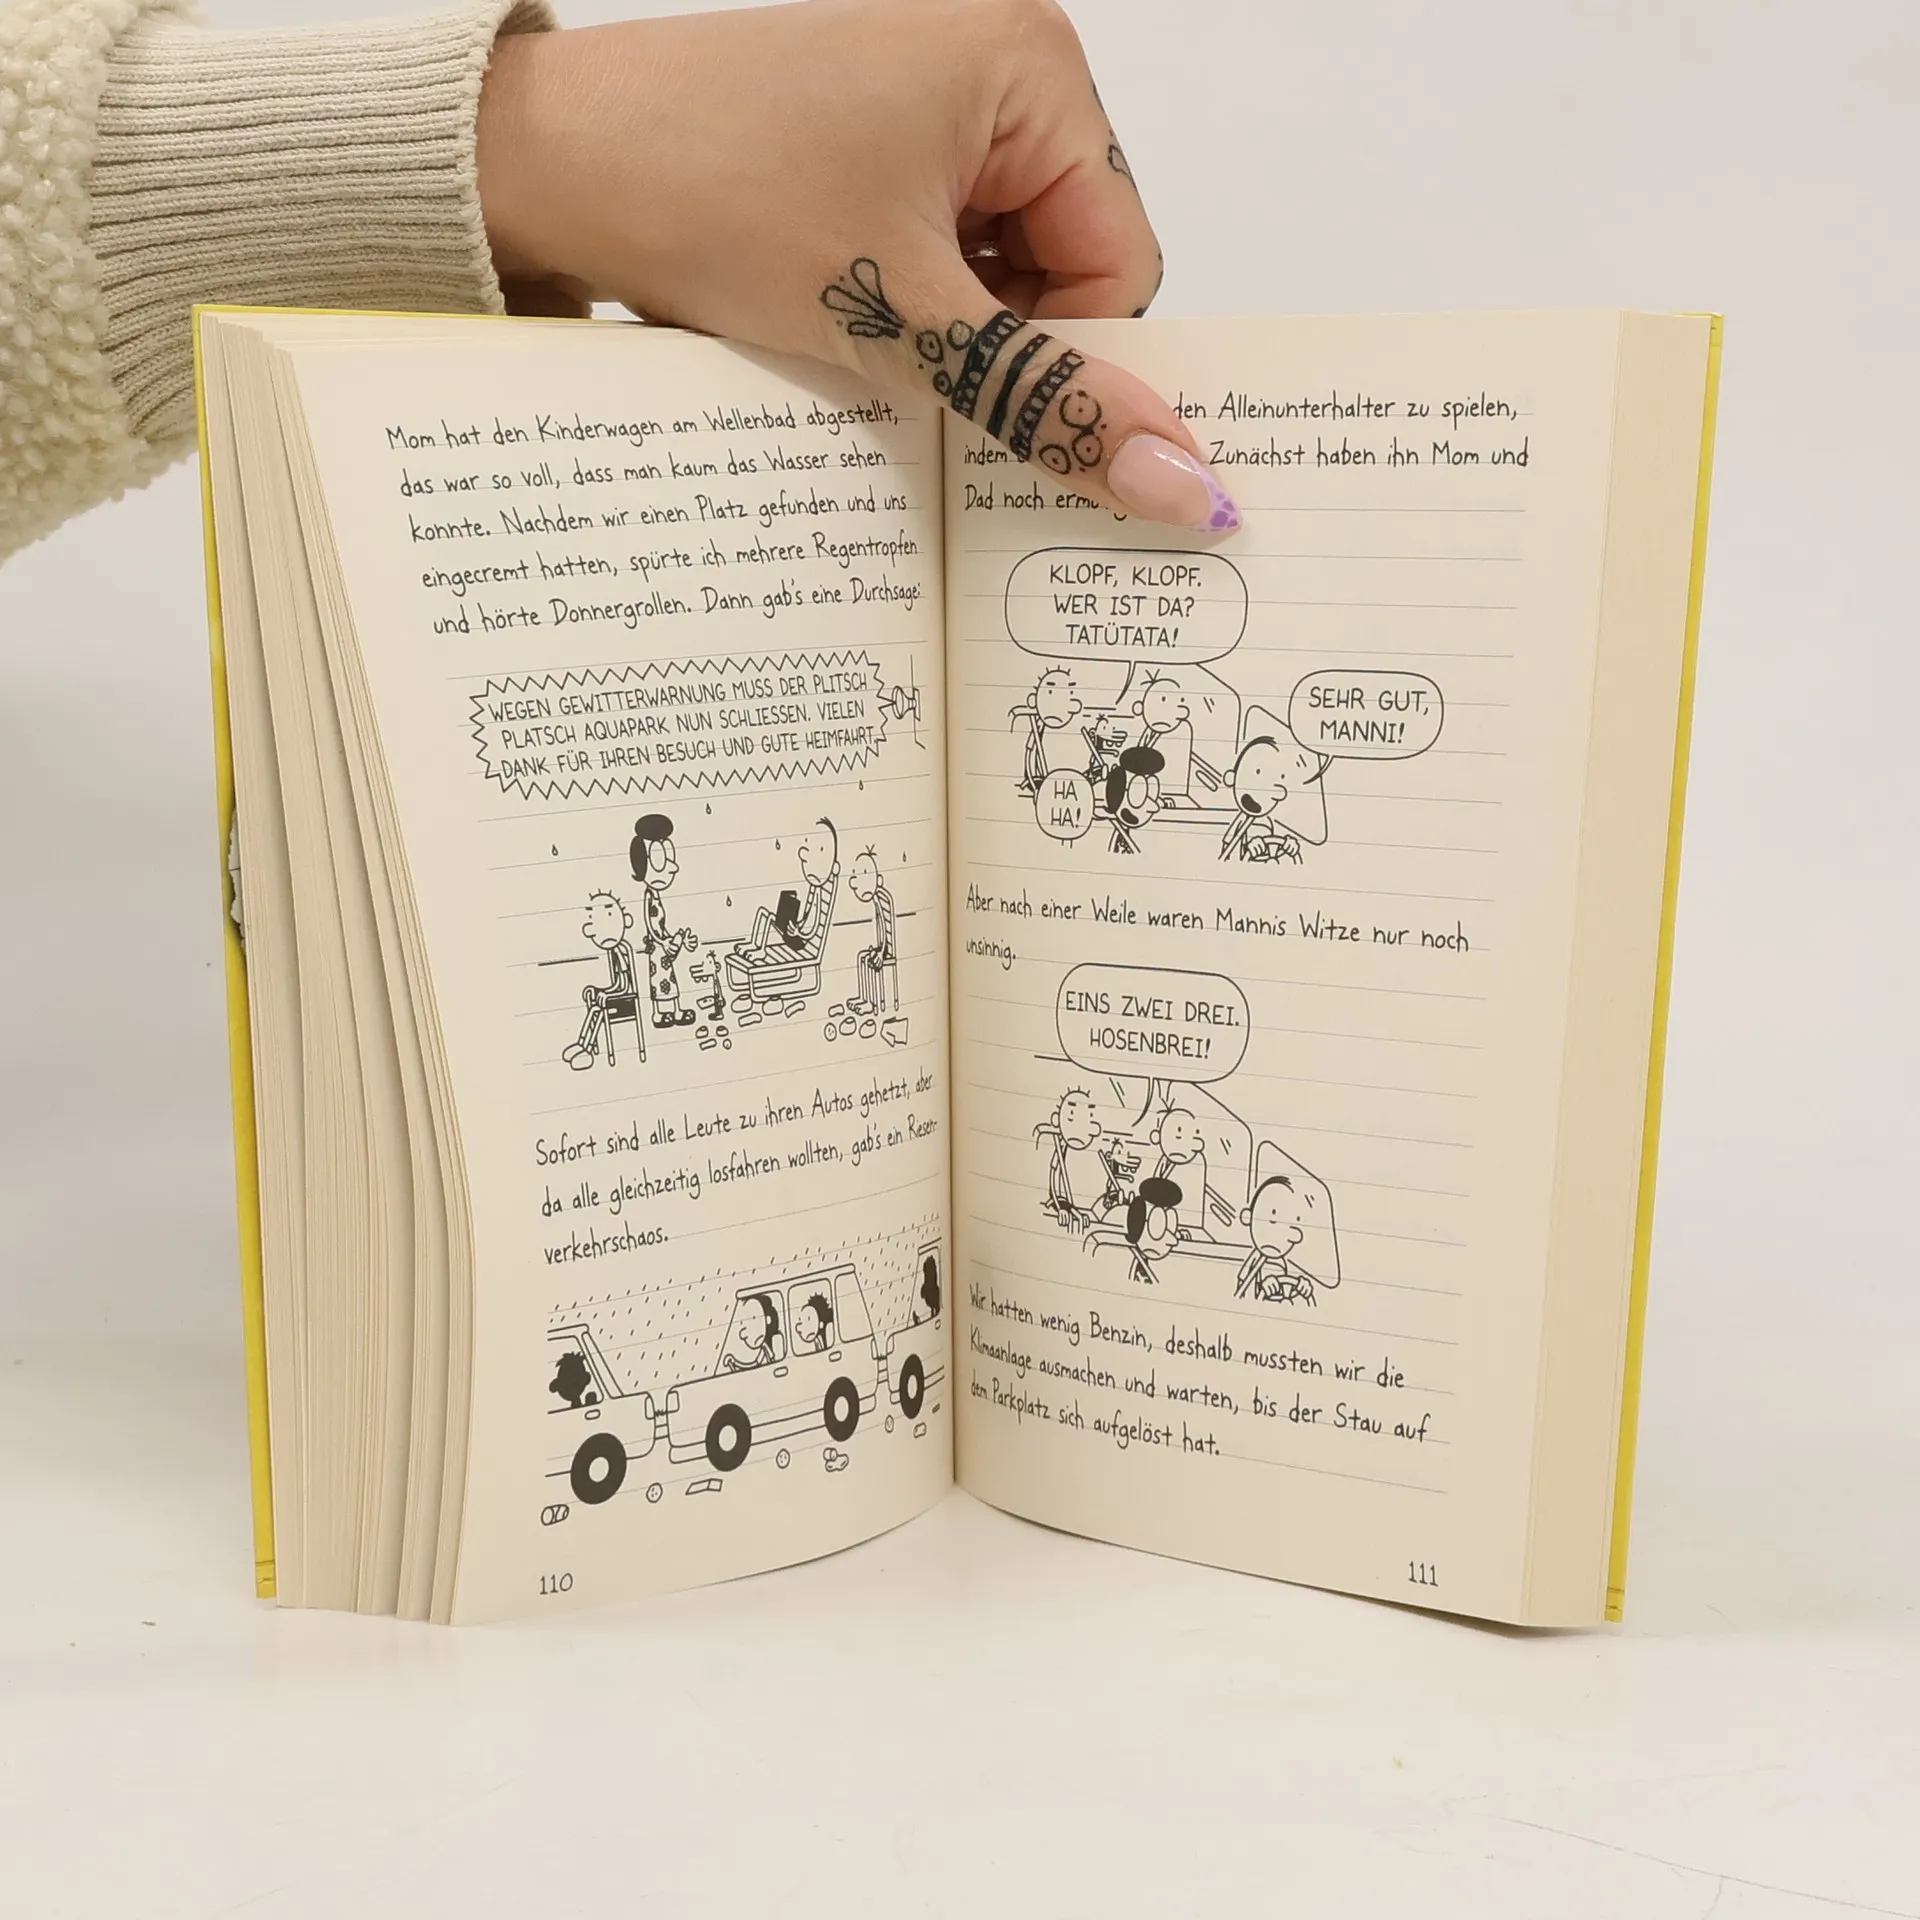 Mom hat den Kinderwagen am Wellenbad abgestellt,
das war so voll, dass man kaum das Wasser sehen
konnte. Nachdem wir einen Platz gefunden und uns
eingecremt hatten, spürte ich mehrere Regentropfen
und hörte Donnergrollen. Dann gab's eine Durchsage:
WEGEN GEWITTERWARNUNG MUSS DER PLITSCH
PLATSCH AQUAPARK NUN SCHLIESSEN. VIELEN
DANK FÜR IHREN BESUCH UND GUTE HEIMFAHRT.
Sofort sind alle Leute zu ihren Autos gehetzt, aber
da alle gleichzeitig losfahren wollten, gab's ein Riesen-
verkehrschaos.
110
den Alleinunterhalter zu spielen,
indem Zunächst haben ihn Mom und
Dad noch
KLOPF, KLOPF.
WER IST DA?
TATÜTATA!
SEHR GUT,
MANNI!
HA
HA!
Aber nach einer Weile waren Mannis Witze nur noch
unsinnig.
EINS ZWEI DREI.
HOSENBREI!
Wir hatten wenig Benzin, deshalb mussten wir die
Klimaanlage ausmachen und warten, bis der Stau auf
dem Parkplatz sich aufgelöst hat.
111